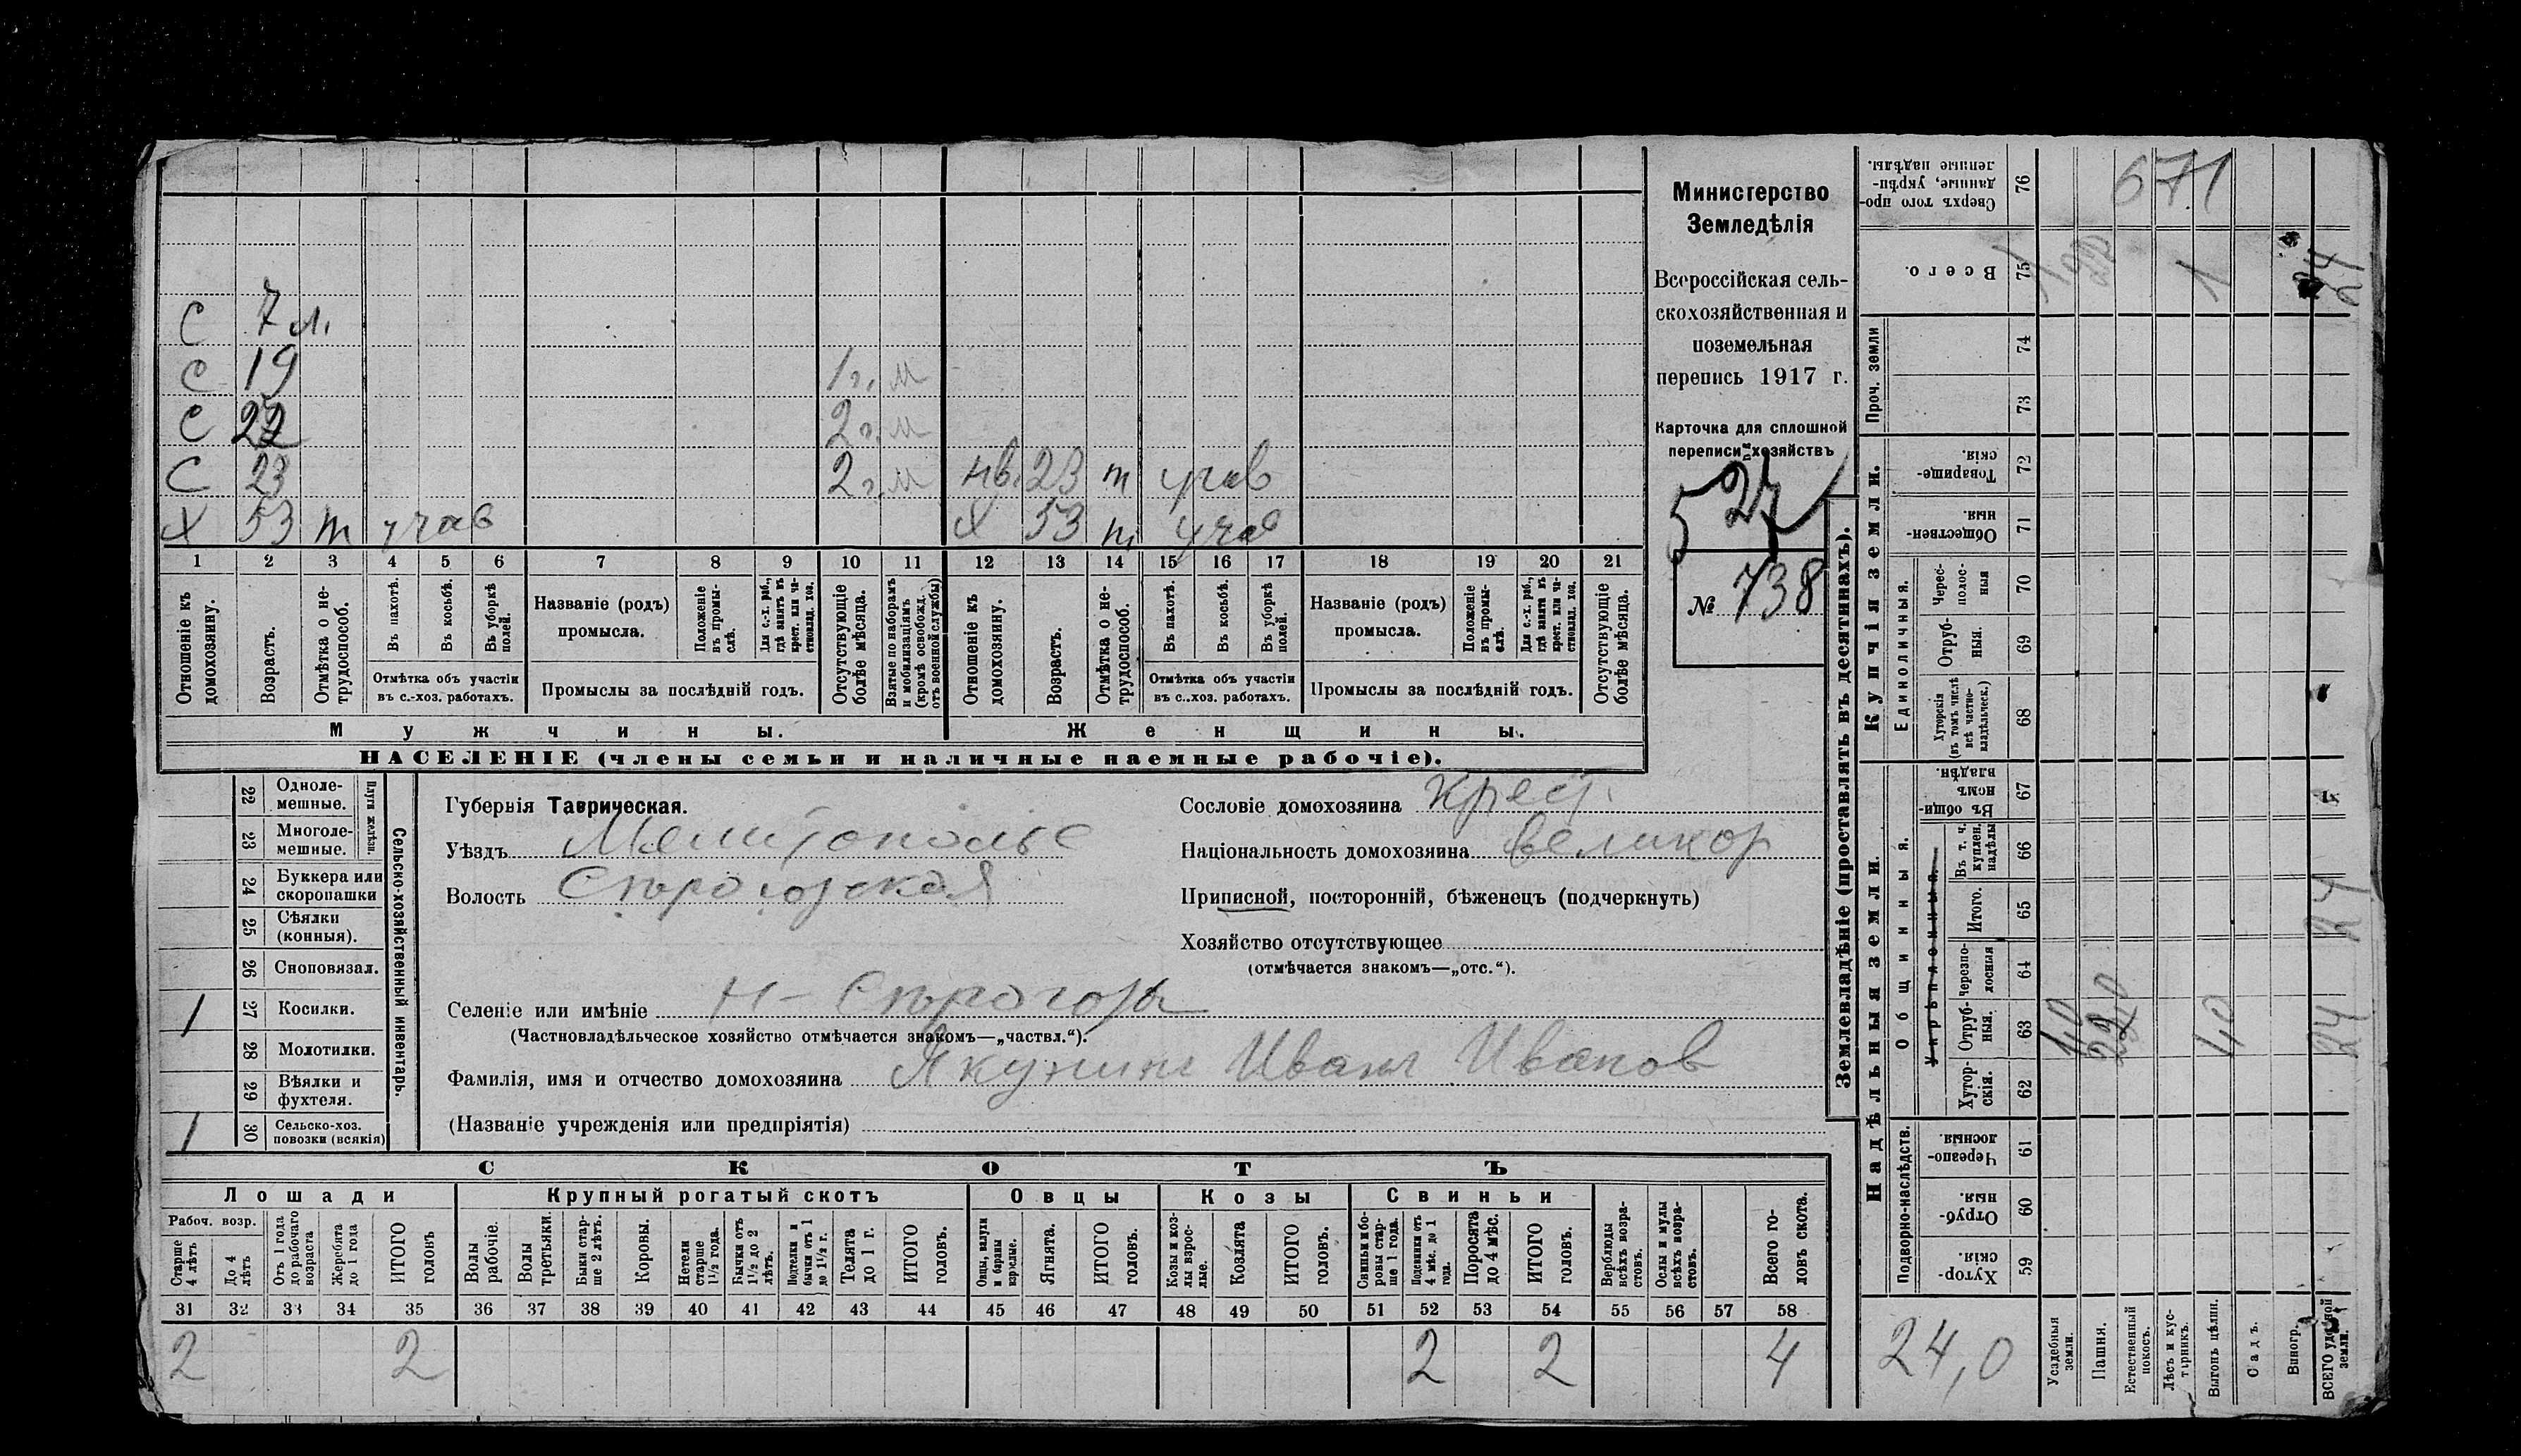 С 7 л.
С 19 1 г. м
С 22 2 г. м
С 23 2 г. м нв. 23 т учав
Х 53 т учав Х 53 т учав
1 2 3 4 5 6 7 8 9 10 11 12 13 14 15 16 17 18 19 20 21
Отношеніе къ домохозяину.
Возрастъ.
Отмѣтка о не-трудоспособ.
Въ пахотѣ.
Въ косьбѣ.
Въ уборкѣ полей.
Отмѣтка объ участіи въ с.-хоз. работахъ.
Названіе (родъ) промысла.
Положеніе въ промы-слѣ.
Для с.-х. раб., гдѣ занятъ въ крест. или ча-стновлад. хоз.
Промыслы за послѣдній годъ.
Отсутствующіе болѣе мѣсяца.
Взятые по наборамъ и мобилизаціямъ (кромѣ освобожд. отъ военной службы)
Отношеніе къ домохозяину.
Возрастъ.
Отмѣтка о не-трудоспособ.
Въ пахотѣ.
Въ косьбѣ.
Въ уборкѣ полей.
Отмѣтка объ участіи въ с..хоз. работахъ.
Названіе (родъ) промысла.
Положеніе въ промы-слѣ.
Для с.-х. раб., гдѣ занята въ крест. или ча-стновлад. хоз.
Промыслы за послѣдній годъ.
Отсутствующіе болѣе мѣсяца.
Мужчины. Женщины.
НАСЕЛЕНІЕ (члены семьи и наличные наемные рабочіе).
Министерство
Земледѣлія
Всероссійская сель-
скохозяйственная и
поземельная
перепись 1917 г.
Карточка для сплошной
переписи хозяйствъ
527
№ 738
Сельско-хозяйственный инвентарь.
Плуги желѣзн.
22 Одноле-мешные.
23 Многоле-мешные.
24 Буккера или скоропашки
25 Сѣялки (конныя).
26 Сноповязал.
1 27 Косилки.
28 Молотилки.
29 Вѣялки и фухтеля.
1 30 Сельско-хоз. повозки (всякія)
Губернія Таврическая.
Уѣздъ Мелитопольс
Волость Сѣрогозская
Сословіе домохозяина крест.
Національность домохозяина великор
Приписной, посторонній, бѣженецъ (подчеркнуть)
Хозяйство отсутствующее
(отмѣчается знакомъ—„отс.“).
Селеніе или имѣніе Н-Сѣрогозы
(Частновладѣльческое хозяйство отмѣчается знакомъ—„частвл.“).
Фамилія, имя и отчество домохозяина Якунинъ Иванъ Иванов
(Названіе учрежденія или предпріятія)
СКОТЪ
Лошади Крупный рогатый скотъ Овцы Козы Свиньи
Рабоч. возр.
Старше 4 лѣтъ
До 4 лѣтъ
Отъ 1 года до рабочаго возраста
Жеребята до 1 года
ИТОГО головъ
Волы рабочіе.
Волы третьяки.
Быки стар-ше 2 лѣтъ.
Коровы.
Нетели старше 1½ года.
Бычки отъ 1½ до 2 лѣтъ.
Подтелки и бычки отъ 1 до 1½ г.
Телята до 1 г.
ИТОГО головъ.
Овцы, валухи и бараны взрослые.
Ягнята.
ИТОГО головъ.
Козы и коз-лы взрос-лые.
Козлята
ИТОГО головъ.
Свиньи бо-ровы стар-ше 1 года.
Подсвинки отъ 4 мѣс. до 1 года.
Поросята до 4 мѣс.
ИТОГО головъ.
Верблюды всѣхъ возра-стовъ.
Ослы и мулы всѣхъ возра-стовъ.
Всего го-ловъ скота.
31 32 33 34 35 36 37 38 39 40 41 42 43 44 45 46 47 48 49 50 51 52 53 54 55 56 57 58
2 2 2 2 4
Землевладѣніе (проставлять въ десятинахъ).
Купчія земли.
Надѣльныя земли.
76 Сверхъ того про-данные, укрѣп-ленные надѣлы. 671
75 Всего. 1 22 1 24
Проч. земли
74
73
72 Товарище-скія.
71 Обществен-ныя
Единоличныя.
70 Черес-полос-ныя
69 Отруб-ныя.
68 Хуторскія (въ томъ числѣ всѣ частно-владѣльческ.)
67 Въ общи-номъ владѣн.
Общинныя.
Укрѣпленныя.
66 Въ т. ч. куплен. надѣлы
65 Итого. 24
64 Черезпо-лосныя
63 Отруб-ныя. 1,0 22,0 1,0 24
62 Хутор-скія.
Подворно-наслѣдств.
61 Черезпо-лосныя.
60 Отруб-ныя.
59 Хутор-скія.
24,0
Усадебныя земли.
Пашня.
Естественный покосъ.
Лѣсъ и кус-тарникъ.
Выгонъ цѣлин.
Садъ.
Виногр.
ВСЕГО удобной земли.